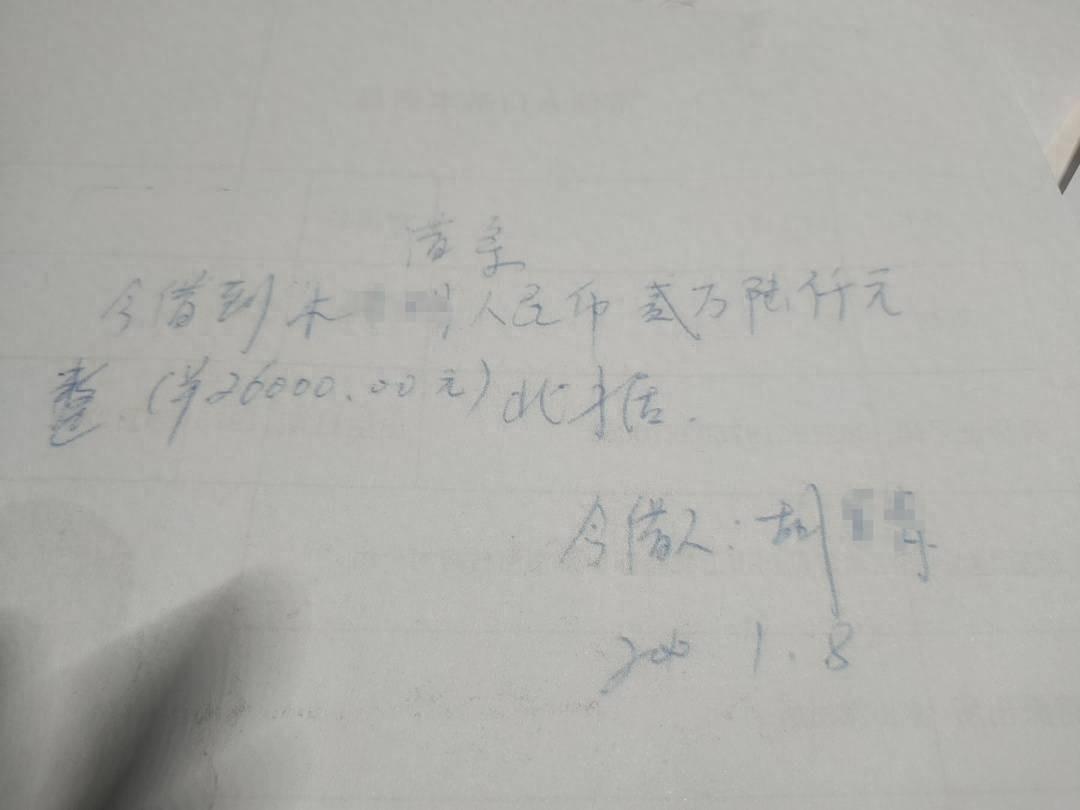 借条
今借到 人民币贰万陆仟元
整(¥26000.00元)此才居.
今借人:胡
1.8